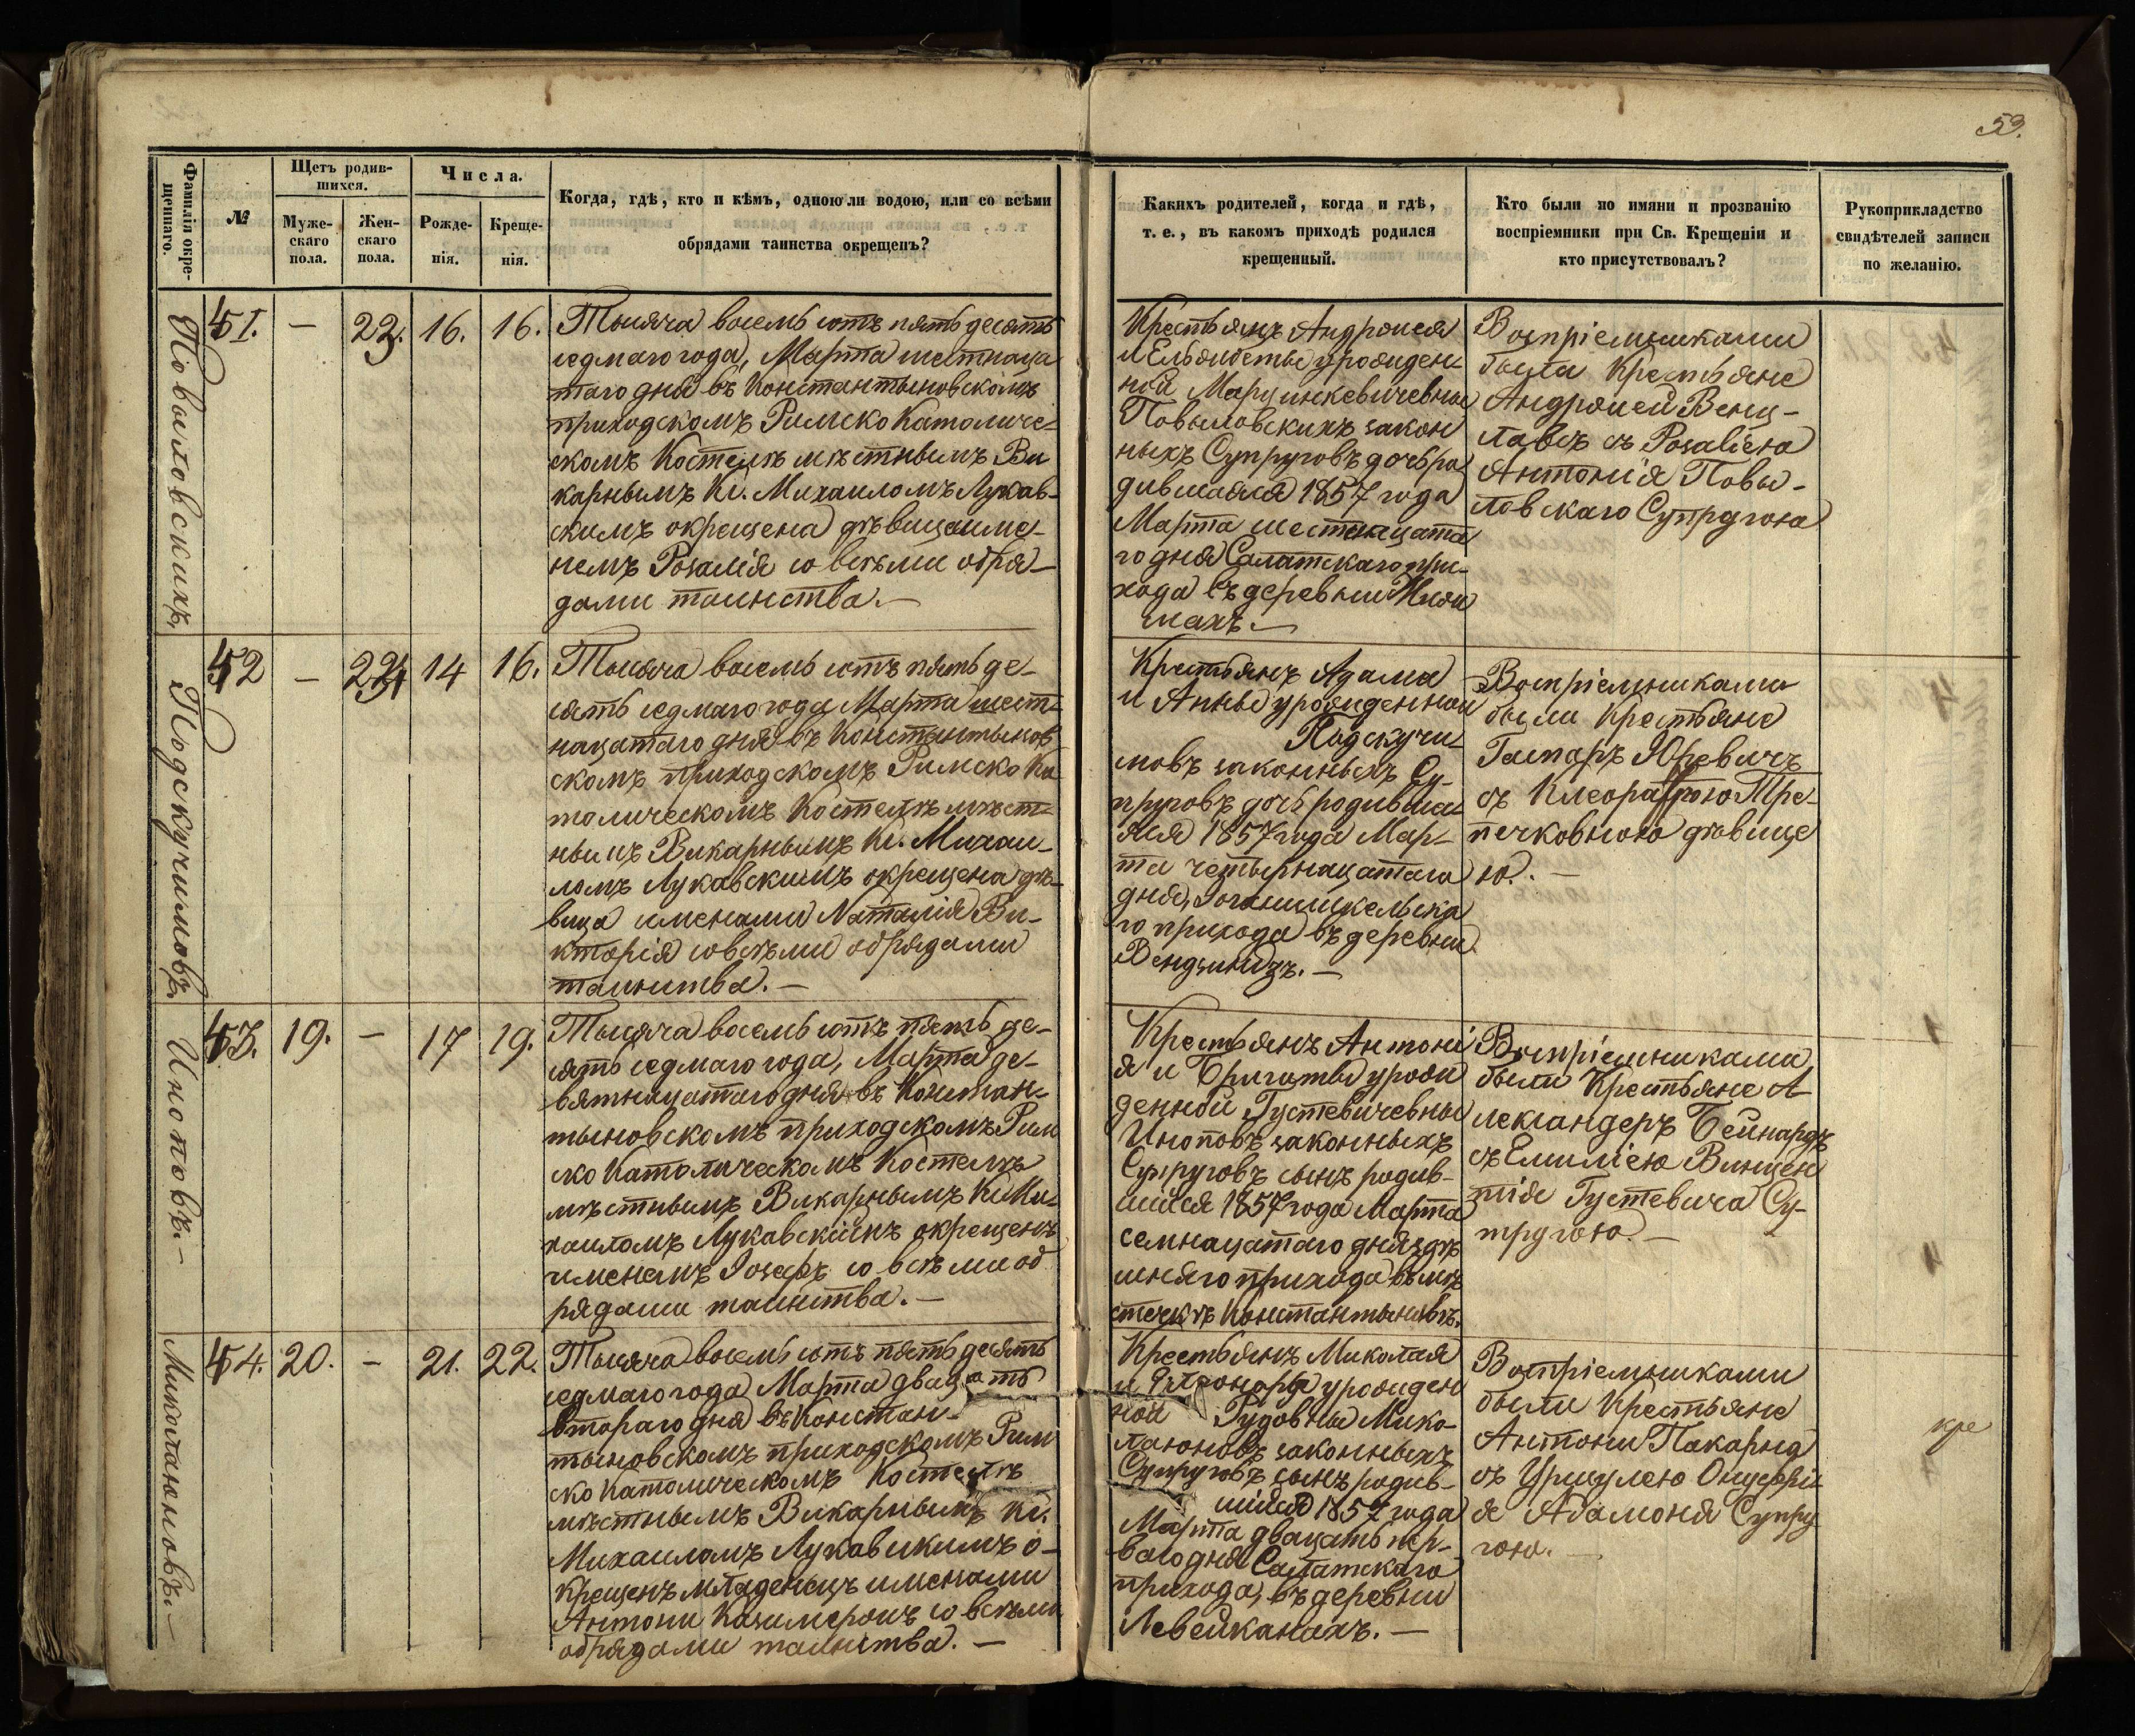 53.
Фамиліи окре-
щеннаго.
№
Щетъ родив-
шихся.
Муже-
скаго
пола.
Жен-
скаго
пола.
Числа.
Рожде-
нія.
Креще-
нія.
Когда, гдѣ, кто и кѣмъ, одною ли водою, или со всѣми
обрядами таинства окрещенъ?
Какихъ родителей, когда и гдѣ,
т. е., въ какомъ приходѣ родился
крещенный.
Кто были по имяни и прозванію
воспріемники при Св. Крещеніи и
кто присутствовалъ?
Рукоприкладство
свидѣтелей записи
по желанію.
Повиловскихъ,
51. — 16. 16.
Тысяча восемь сотъ пять десять
седмаго года, Марта шестнаца
таго дня въ Константыновскомъ
приходскомъ Римско Католиче-
скомъ Костелѣ мѣстнымъ Ви
карнымъ Кс. Михаиломъ Лукав-
скимъ окрещена дѣвица име-
немъ Розалія со всѣми обря-
дами таинства.—
Крестьянъ Андрыея
и Ельзибеты урожден-
ной Марцинкевичевны
Повиловскихъ закон
ныхъ Супруговъ дочь ро
дившаяся 1857 года
Марта шестнацата
го дня Салатскаго при-
хода въ деревни
махъ.—
Воспріемниками
были Крестьяне
Андрыей Венц-
лавъ съ Розаліею
Антонія Повы-
ловскаго Супругою
Подскучимовъ.
52 — 14 16.
Тысяча восемь сотъ пять де-
сять седмаго года Марта шест-
нацатаго дня въ Константынов
скомъ приходскомъ Римско Ка
толическомъ Костелѣ мѣст-
нымъ Викарнымъ Кс. Михаи-
ломъ Лукавскимъ окрещена дѣ-
вица именами Наталія Ви-
кторія со всѣми обрядами
таинства.—
Крестьянъ Адама
и Анны урожденной
Подскучи-
мовъ законныхъ Су-
пруговъ дочь родивша-
яся 1857 года Мар-
та четырнацатаго
дня, Іоганишкельска
го прихода въ деревни
Воспріемниками
были Крестьяне
Гаспаръ Юревичъ
съ Клеопатрою Тре-
печковною дѣвице
ю.—
Иноповъ.—
53. 19. — 17 19.
Тысяча восемь сотъ пять де-
сять седмаго года, Марта де-
вятнацатаго дня въ Констан-
тыновскомъ приходскомъ Рим
ско Католическомъ Костелѣ
мѣстнымъ Викарнымъ Кс Ми-
хаиломъ Лукавскимъ окрещенъ
именемъ Іозефъ со всѣми об
рядами таинства.—
Крестьянъ Антоні
я и Бригиты урож
денной Густевичевны
Иноповъ законныхъ
Супруговъ сынъ родив-
шійся 1857 года Марта
семнацатаго дня здѣ
шняго прихода въ мѣ
стечкѣ Константыновѣ.
Воспріемниками
были Крестьяне А
лександеръ Бейнардъ
съ Емиліею Винцен
тія Густевича Су-
пругою.—
Миколаюновъ.—
54. 20. — 21. 22.
Тысяча восемь сотъ пять десять
седмаго года Марта двацать
втораго дня въ Констан-
тыновскомъ приходскомъ Рим
ско Католическомъ Костелѣ
мѣстнымъ Викарнымъ Кс.
Михаиломъ Лукавскимъ о-
крещенъ младенецъ именами
Антони Казимеромъ со всѣми
обрядами таинства.—
Крестьянъ Миколая
и урожден
ной Гудовны Мико-
лаюновъ законныхъ
Супруговъ сынъ родив-
шійся 1857 года
Марта двацать пер-
ваго дня Салатскаго
прихода, въ деревни
Левейканахъ.—
Воспріемниками
были Крестьяне
Антони Покарна
съ Уршулею Онуфрі
я Адамоня Супру
гою.—